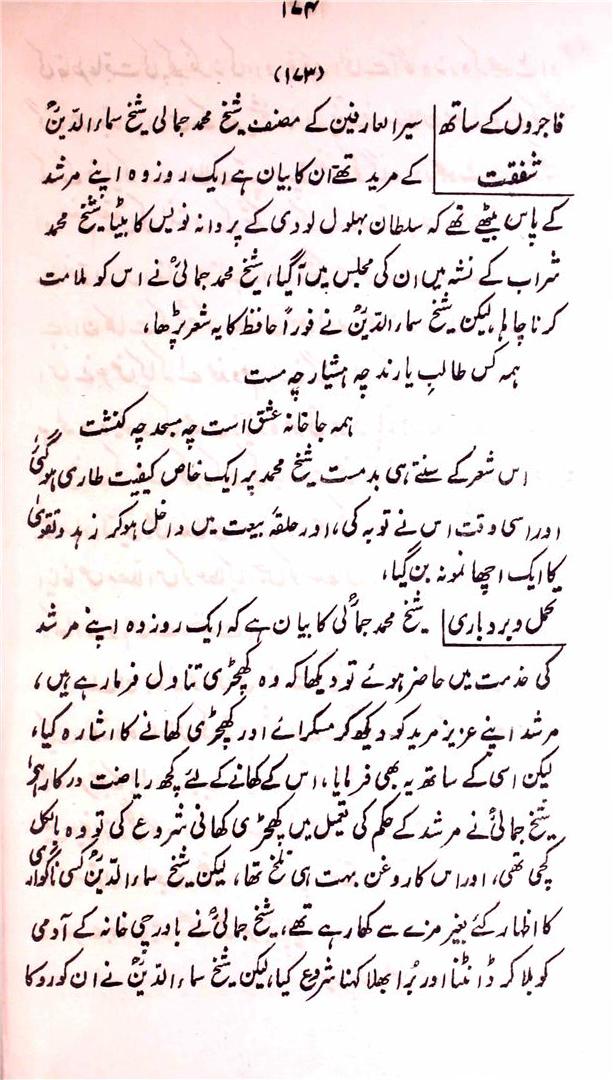 ۱۷۴
(۱۷۳)
فاجروں کے ساتھ شفقت
سیر العارفین کے مصنف شیخ محمد جمالی شیخ سماء الدینؒ
کے مرید تھے ان کا بیان ہے ایک روز وہ اپنے مرشد
کے پاس بیٹھے تھے کہ سلطان بہلول لودی کے پروانہ نویس کا بیٹا شیخ محمد
شراب کے نشہ میں ان کی مجلس میں آگیا، شیخ محمد جمالیؒ نے اس کو ملامت
کرنا چاہا، لیکن شیخ سماء الدینؒ نے فوراً حافظ کا یہ شعر پڑھا،
ہمہ کس طالبِ یارند چہ ہشیار چہ مست
ہمہ جا خانہ عشق است چہ مسجد چہ کنشت
اس شعر کے سنتے ہی بدمست شیخ محمد پر ایک خاص کیفیت طاری ہوگئی
اور اسی وقت اس نے توبہ کی، اور حلقۂ بیعت میں داخل ہوکر زہد و تقویٰ
کا ایک اچھا نمونہ بن گیا،
تحمل و بردباری شیخ محمد جمالیؒ کا بیان ہے کہ ایک روز وہ اپنے مرشد
کی خدمت میں حاضر ہوئے تو دیکھا کہ وہ کھچڑی تناول فرما رہے ہیں،
مرشد اپنے عزیز مرید کو دیکھ کر مسکرائے اور کھچڑی کھانے کا اشارہ کیا،
لیکن اسی کے ساتھ یہ بھی فرمایا، اس کے کھانے کے لئے کچھ ریاضت درکار ہے،
شیخ جمالیؒ نے مرشد کے حکم کی تعمیل میں کھچڑی کھانی شروع کی تو وہ بالکل
کچی تھی، اور اس کا روغن بہت ہی تلخ تھا، لیکن شیخ سماء الدینؒ کسی ناگواری
کا اظہار کئے بغیر مزے سے کھا رہے تھے، شیخ جمالیؒ نے باورچی خانہ کے آدمی
کو بلا کر ڈانٹنا اور بُرا بھلا کہنا شروع کیا، لیکن شیخ سماء الدینؒ نے ان کو روکا